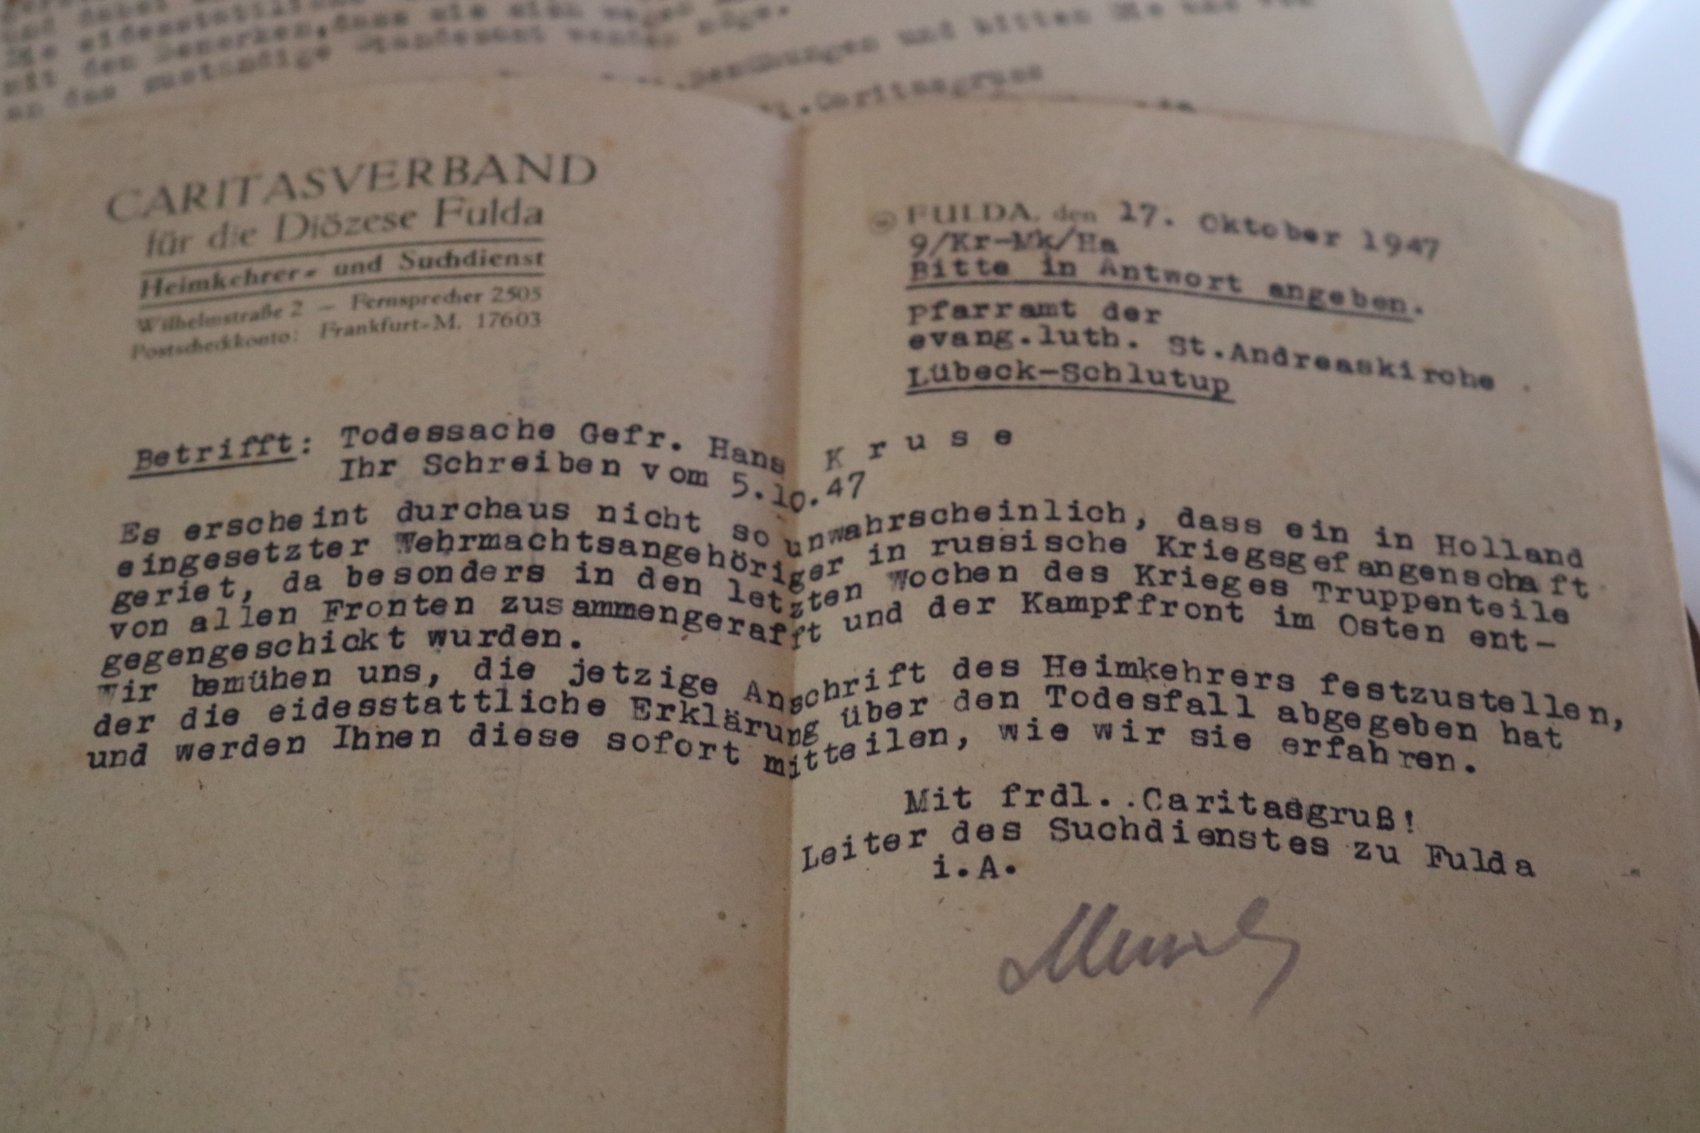 mit den Bemerken, dass sie sich wegen
an das zuständige Standesamt wenden möge.
Bemühungen und bitten Sie
Caritasgruss
CARITASVERBAND
für die Diözese Fulda
Heimkehrer- und Suchdienst
Wilhelmstraße 2 - Fernsprecher 2505
Postscheckkonto: Frankfurt-M. 17603
FULDA, den 17. Oktober 1947
9/Kr-Mk/Ha
Bitte in Antwort angeben.
Pfarramt der
evang.luth. St.Andreaskirche
Lübeck-Schlutup
Betrifft: Todessache Gefr. Hans K r u s e
Ihr Schreiben vom 5.10.47
Es erscheint durchaus nicht so unwahrscheinlich, dass ein in Holland
eingesetzter Wehrmachtsangehöriger in russische Kriegsgefangenschaft
geriet, da besonders in den letzten Wochen des Krieges Truppenteile
von allen Fronten zusammengerafft und der Kampffront im Osten ent-
gegengeschickt wurden.
Wir bemühen uns, die jetzige Anschrift des Heimkehrers festzustellen,
der die eidesstattliche Erklärung über den Todesfall abgegeben hat
und werden Ihnen diese sofort mitteilen, wie wir sie erfahren.
Mit frdl..Caritasgruß!
Leiter des Suchdienstes zu Fulda
i.A.